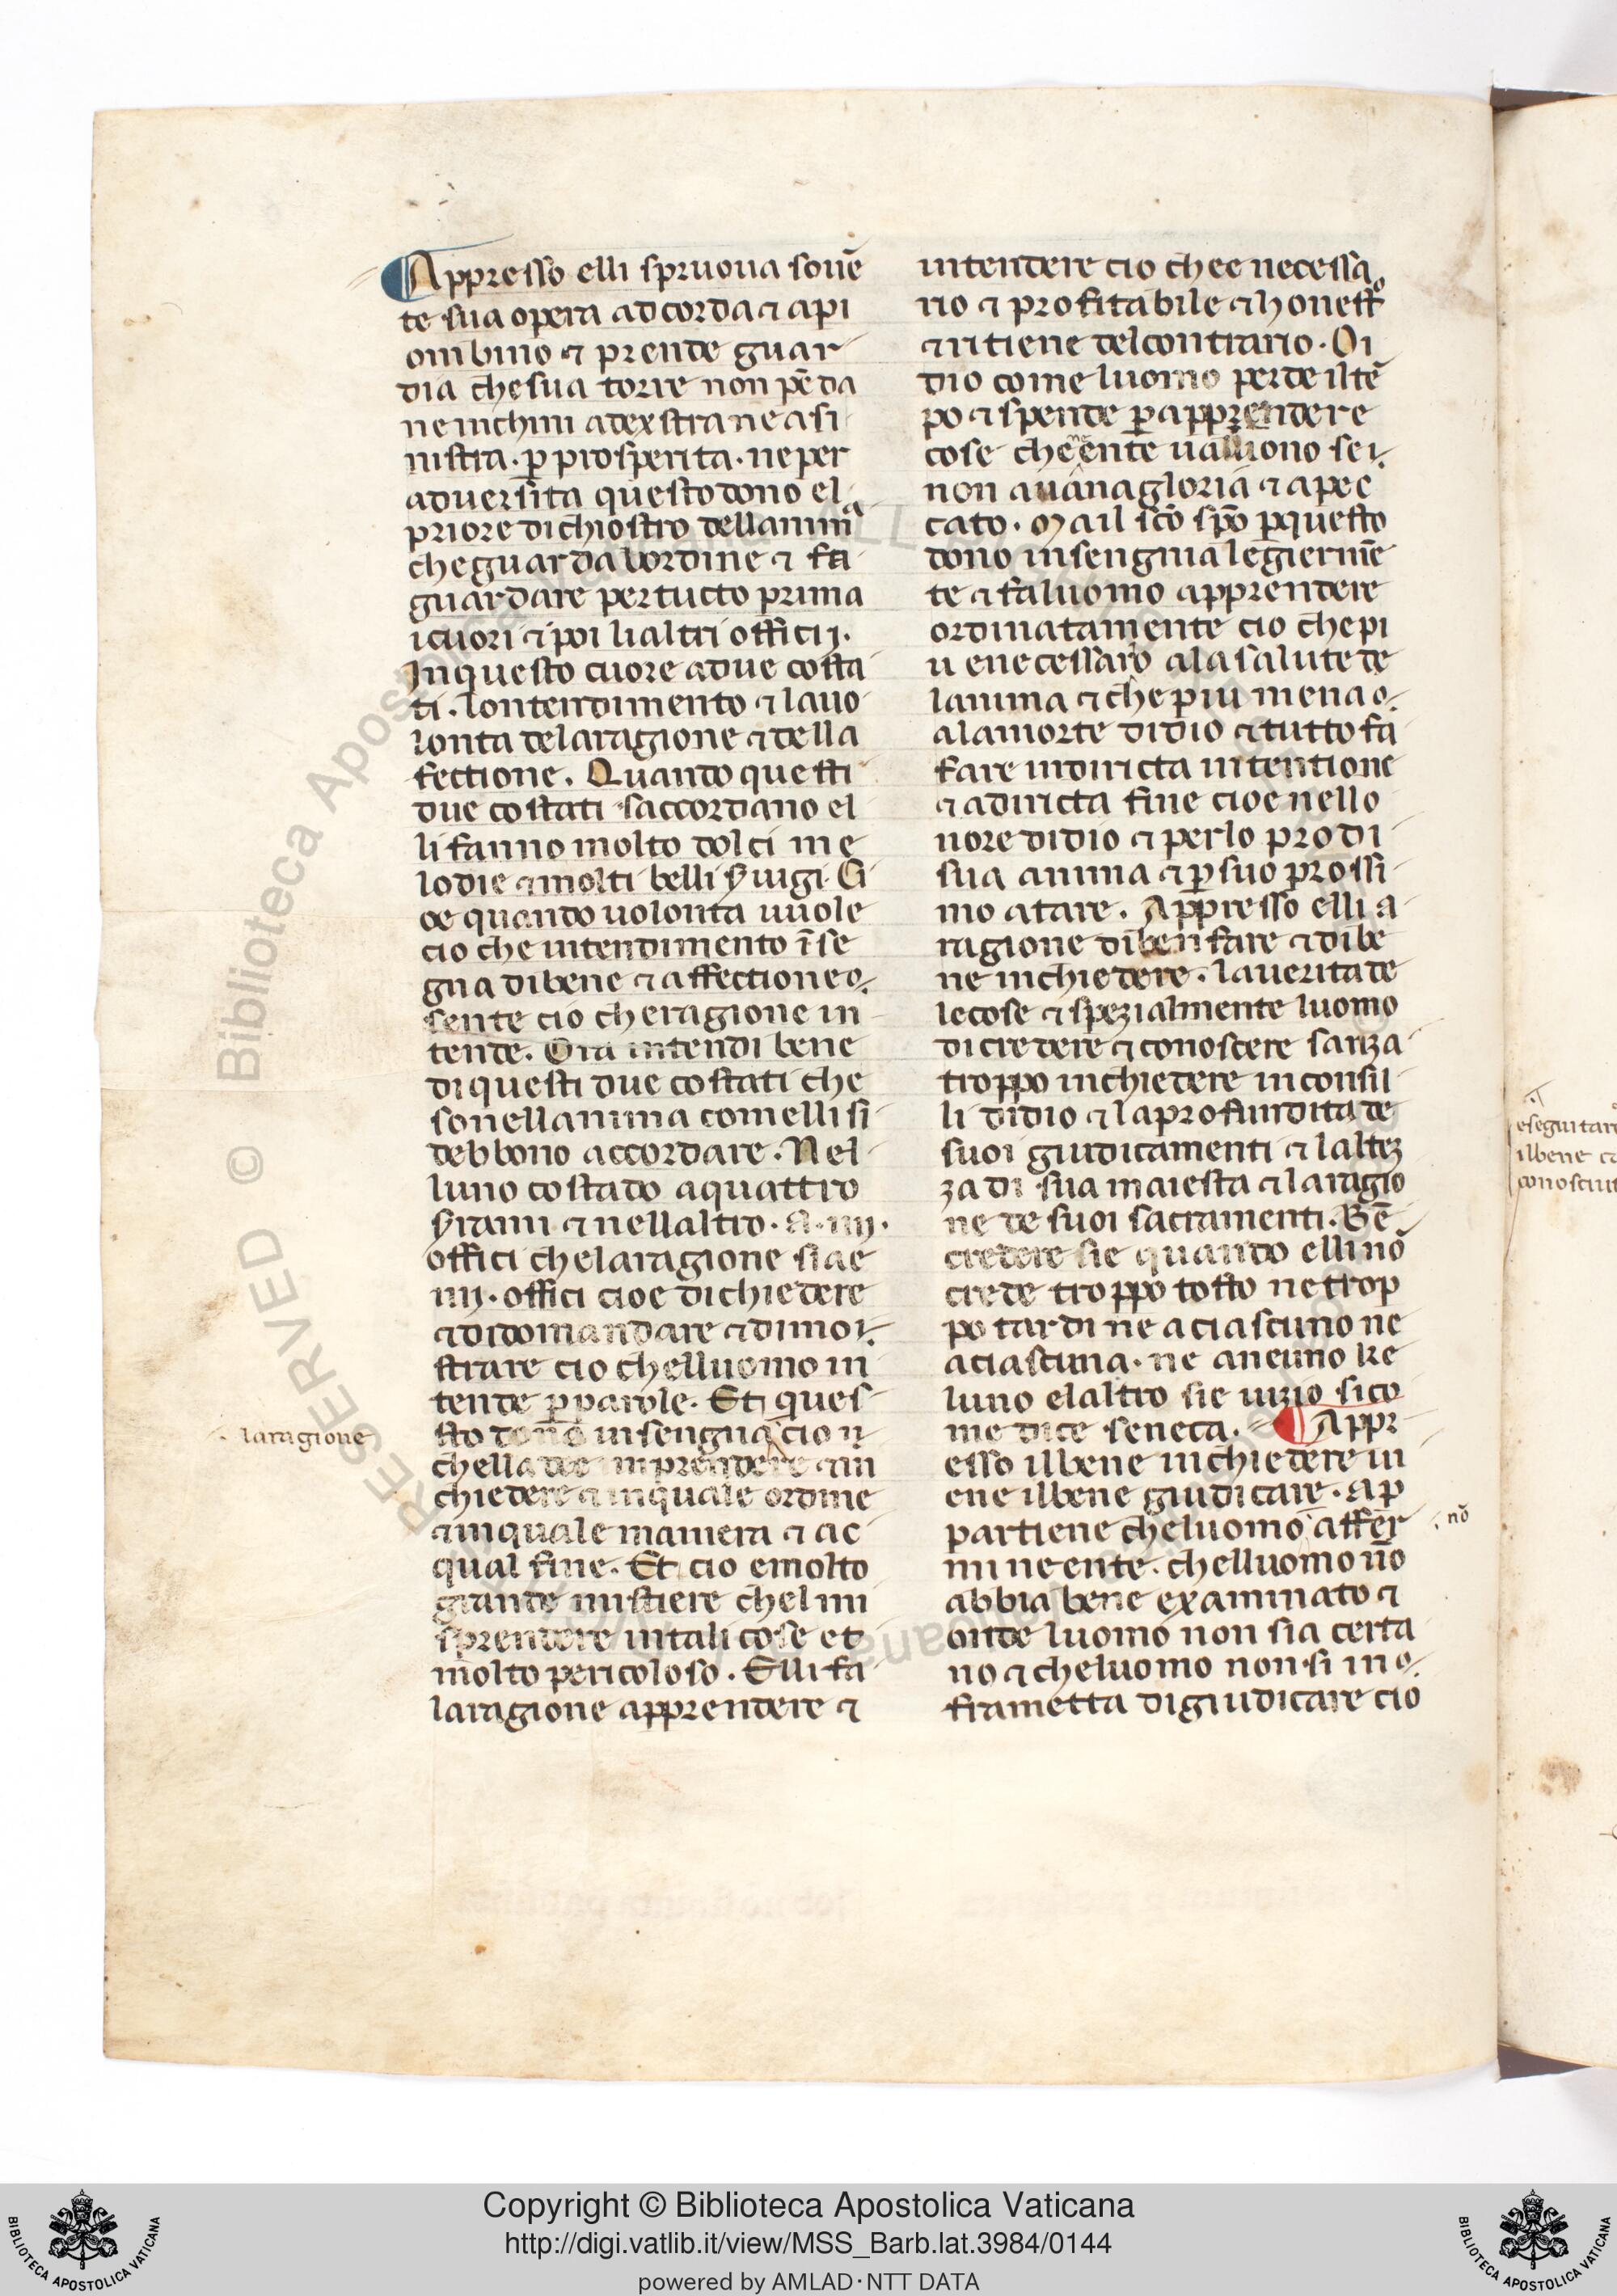 Appresso elli spruoua souē
te sua opera ad corda ⁊ api
ombino ⁊ prende guar
dia che sua torre non pēda
ne inchini adextra ne a si
nistra. ꝑ prosperita. ne per
aduersita questo dono el
priore di chiostro dellanima
che guarda lordine ⁊ fa
guardare per tucto prima
icuori ⁊ poi li altri officij.
In questo cuore a due costa
ti. lontendimento ⁊ lauo
lonta delaragione ⁊ della
fectione. Quando questi
due costati saccordano el
li fanno molto dolci me
lodie ⁊ molti belli
oe quando uolonta uuole
cio che intendimento īse
gna di bene ⁊ affectione
sente cio che ragione in
tende. Ora intendi bene
di questi due costati che
so nellanima comelli si
debbono accordare. Nel
luno costado a quattro
⁊ nellaltro. a. iiij.
offici che laragione si a e
iiij. offici cioe di chiedere
⁊ di domandare ⁊ di mo
strare cio chelluomo in
tende ꝑ parole. Et ques
sto dono insengna cio
chella dee imprendere ⁊ in
chiedere ⁊ in quale ordine
⁊ in quale maniera ⁊ ac
qual fine. Et cio e molto
grande mistiere chel mi
sprendere in tali cose et
molto pericoloso. Elli fa
laragione apprendere ⁊
laragione
intendere cio che e necessa
rio ⁊ profitabile ⁊ honesto
⁊ ritiene del contrario. Oi
dio come luomo perde il tē
po ⁊ spende ꝑ apprendere
cose che neente uagliono se
non a uana gloria ⁊ a pec
cato. Ma il sc̄o sp̄o ꝑ questo
dono insengnia legiermē
te ⁊ fa luomo apprendere
ordinatamente cio che pi
u e necessaro ala salute de
lanima ⁊ che piu mena
alamorte didio ⁊ tutto fa
fare indiricta intentione
⁊ a diricta fine cioe nello
nore didio ⁊ per lo pro di
sua anima ⁊ ꝑ suo prossi
mo atare. Appresso elli a
ragione di ben fare ⁊ di be
ne inchiedere. la uerita de
le cose ⁊ spezialmente luomo
di credere ⁊ conoscere sanza
troppo inchiedere i consil
li didio ⁊ la profundita de
suoi giudicamenti ⁊ laltez
za di sua maiesta ⁊ laragio
ne de suoi sacramenti. Bē
credere sie quando elli nō
crede troppo tosto ne trop
po tardi ne a ciascuno ne
a ciascuna. ne a neuno ke
luno elaltro sie uizio sico
me dice seneca. Appr
esso il bene inchiedere ui
ene il bene giudicare. ap
partiene che luomo affer
mi neente. chelluomo nō
abbia bene examinato ⁊
onde luomo non sia certa
no ⁊ che luomo non si in
frametta di giudicare cio
nō
e seguitar
il bene